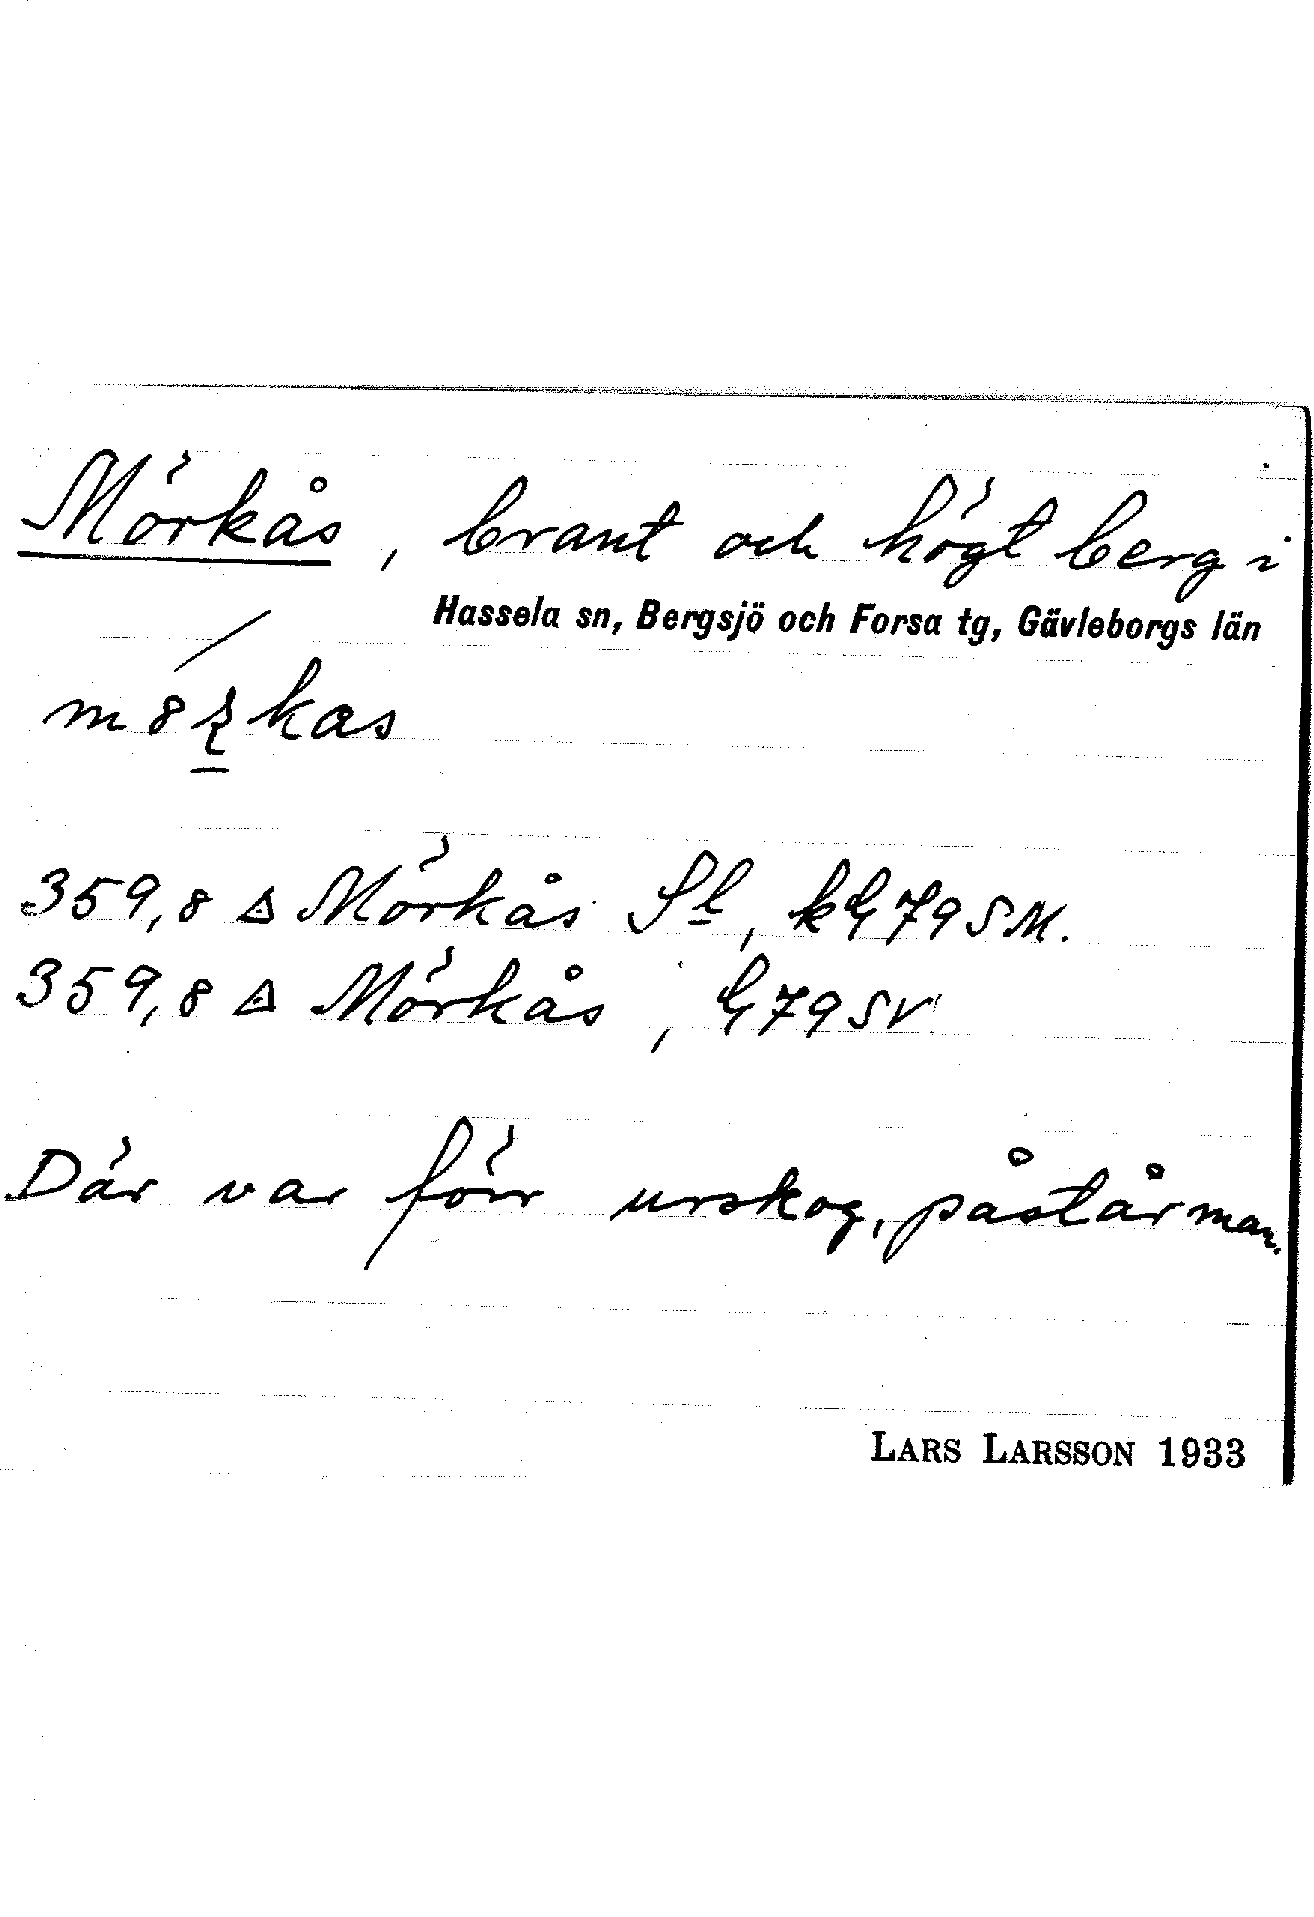 Mörkås, brant och högt berg i
Hassela sn, Bergsjö och Forsa tg, Gävleborgs län
359,8 △ Mörkås Sl, kG79SM.
359,8 △ Mörkås, G79SV
Där var förr urskog, påstår man.
LARS LARSSON 1933